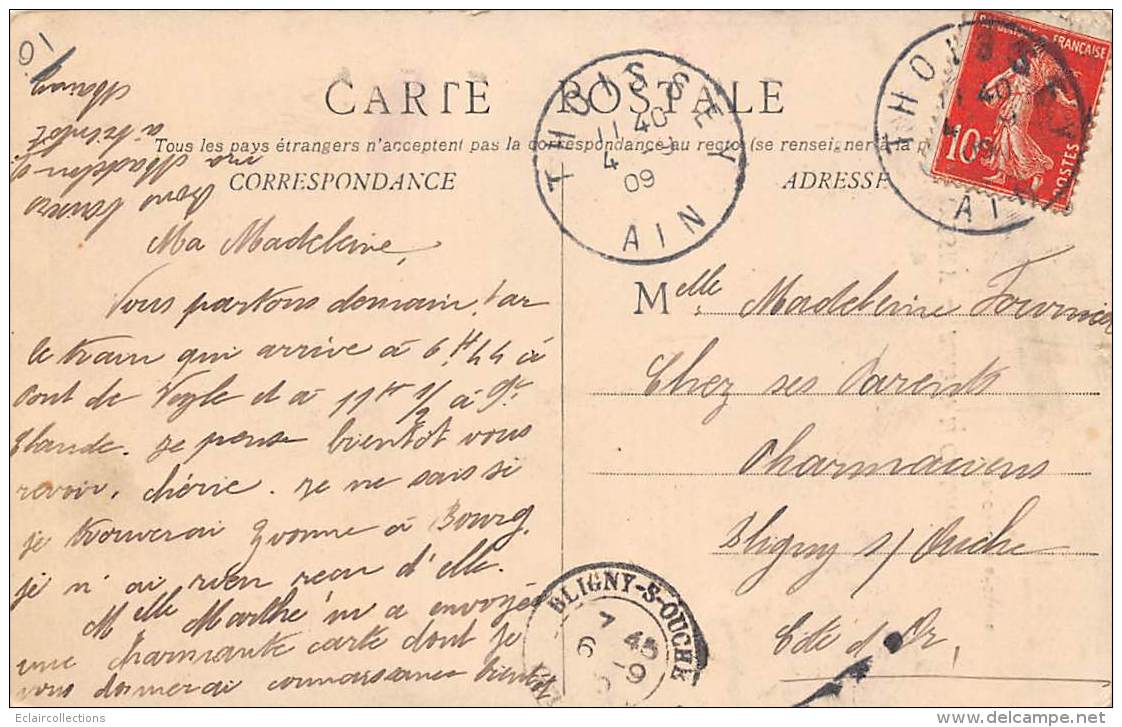 CARTE POSTALE
Tous les pays étrangers n'acceptent pas la correspondance au recto (se renseigner à la p
CORRESPONDANCE
ADRESSE
THOISSEY
11 40
4 -9
09
AIN
THOISSEY
40
09
AI
RÉPUBLIQUE FRANÇAISE
10
POSTES
Ma Madeleine,
Nous partons demain par
le train qui arrive à 6H44 à
Pont de Veyle et à 11H 1/2 à St
Claude. Je pense bientôt vous
revoir, chérie. Je ne sais si
je trouverai Yvonne à Bourg,
je n'ai rien reçu d'elle.
Melle Marthe m'a envoyé
une charmante carte dont je
vous donnerai connaissance bientôt
à bientôt
Melle Madeleine Fournier
Chez ses Parents
Pharmaciens
Bligny s/ Ouche
Côte d'Or,
BLIGNY-S-OUCHE
7 45
6 -9
Eclaircollections